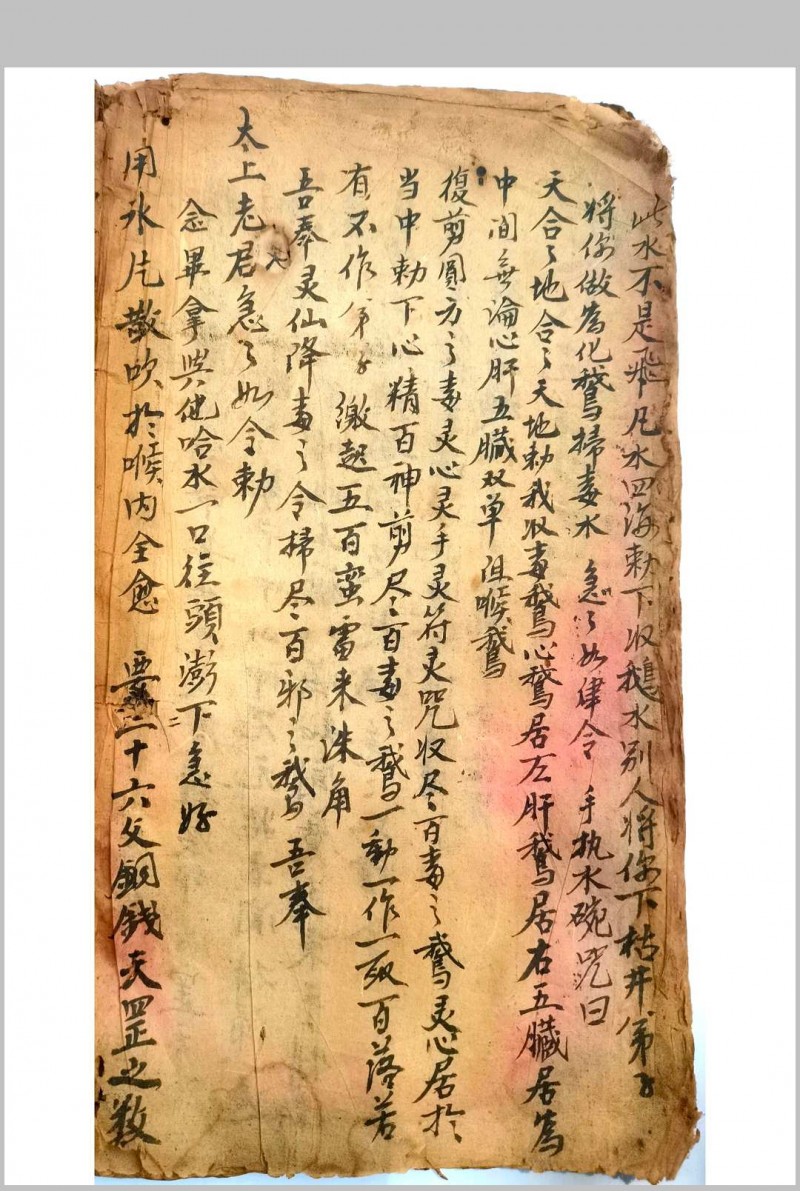 此水不是飛凡水四海勅下收鵝水别人將你下枯井弟子
將你做為化鵝掃毒水 急々如律令 手执水碗咒曰
天合々地合々天地勅我收毒鵝心鵝居左肝鵝居右五臓居為
中间無論心肝五臓双单 咀喉鵝
復剪圓方之毒灵心灵手灵符灵咒收尽百毒之鵝灵心居於
当中勅下心精百神剪尽百毒之鵝一動一作一敢百落若
有不作弟子 激起五百蛮雷来诛角
吾奉灵仙降毒之令掃尽百邪之鵝 吾奉
太上老君急々如令勅
念畢拿與他哈水一口從頭澎下急好
用氷片散吹於喉内全愈 要三十六文銅錢天罡之数